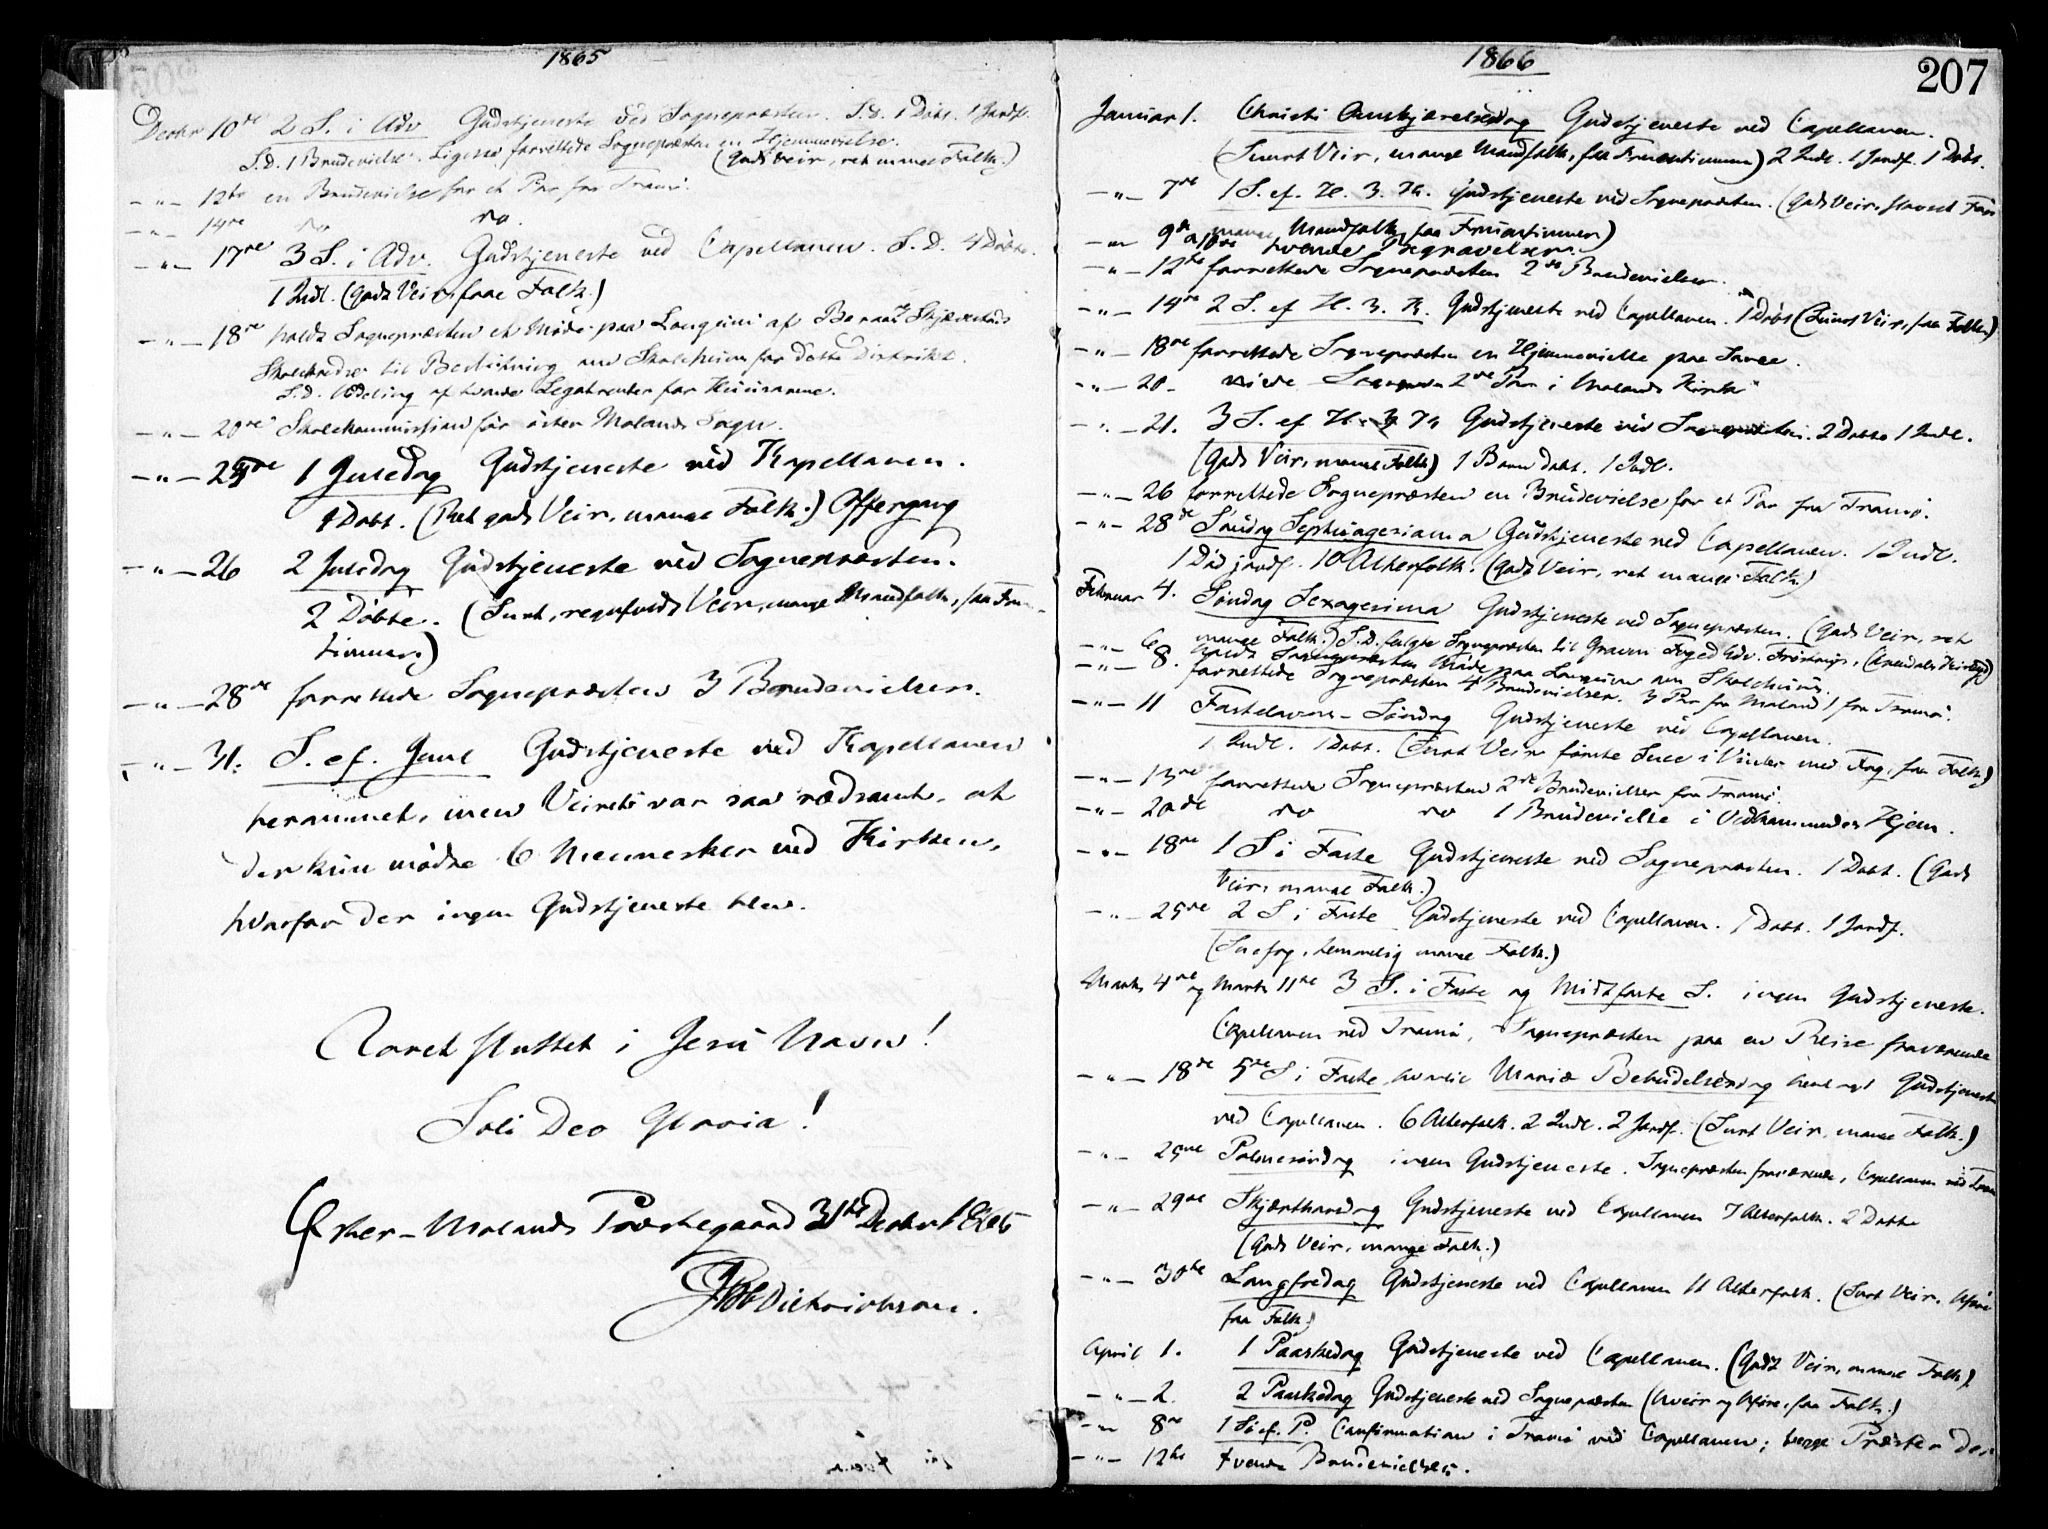 1865
Decbr 10de 2 S. i Adv Gudstjeneste ved Sognepræsten. S.d. 1 Døbt. 1 Jordf.
S.D. 1 Brudevielse. Ligesaa forrettede Sognepræsten en Hjemmevielse.
(Godt Veir, ret mange Folk.)
-"- 12te en Brudevielse for et Par fra Tromø.
-"- 14de do do.
-"- 17de 3 S. i Adv. Gudstjeneste ved Capellanen. S.D. 4 Døbte.
1 Indl. (Godt Veir, faae Folk.)
-"- 18de holdt Sognepræsten et Møde paa Longum af
Skolekredse til Beslutning om Skolehuus for dette Distrikt.
S.D. Uddeling af tvende Legatrenter for Huusarme.
-"- 20de Skolekommission for Øster Molands Sogn.
-"- 25de 1 Juledag Gudstjeneste ved Kapellanen.
1 Døbt. (Ret godt Veir, mange Folk.) Offergang
-"- 26 2 Juledag Gudstjeneste ved Sognepræsten.
2 Døbte. (Surt, regnfuldt Veir, mange Mandfolk, faa Fru-
timmer.)
-"- 28de forrettede Sognepræsten 3 Brudevielser.
-"- 31. S. ef. Juul Gudstjeneste ved Kapellanen
berammet, men Veiret var saa rædsomt, at
der kun mødte 6 Mennesker ved Kirken,
hvorfor der ingen Gudstjeneste blev.
Aaret sluttet i Jesu Navn!
Soli Deo Gloria!
Øster-Molands Præstegaard 31te Decbr 1865
Dietrichson.
1866
207
Januar 1. Christi Omskjærelsesdag Gudstjeneste ved Capellanen.
(Suurt Veir, mange Mandfolk, faa Fruentimmer) 2 Indl. 1 Jordf. 1 Døbt.
-"- 7de 1 S. ef. H. 3. K. Gudstjeneste ved Sognepræsten. (Godt Veir,
mange Mandfolk, faa Fruentimmer)
-"- 9de og 10de tvende Begravelser.
-"- 12te forrettede Sognepræsten 2de Brudevielser.
-"- 14de 2 S. ef H. 3. K. Gudstjeneste ved Capellanen. 1 Døbt (Suurt Veir, faa Folk)
-"- 18de forrettede Sognepræsten en Hjemmevielse paa
-"- 20 viede Sognepr 2de Par i Molands Kirke
-"- 21. 3 S. ef H. 3 K Gudstjeneste ved Sognepræsten. 2 Døbte 1 Indl.
(Godt Veir, mange Folk) 1 Barn døbt. 1 Indl.
-"- 26 forrettede Sognepræsten en Brudevielse for et Par fra Tromø.
-"- 28de Søndag Septuagesima Gudstjeneste ved Capellanen. 1 Indl.
1 Død jordf. 10 Alterfolk. (Godt Veir, ret mange Folk)
Februar 4. Søndag Sexagesima Gudstjeneste ved Sognepræsten. (Godt Veir, ret
mange Folk.) S.D. fulgte Sognepræsten til Graven Foged Adv. (Arendals Kirkegd)
-"- 6 holdt Sognepræsten Møde paa Longum om Skolehuus.
-"- 8. forrettede Sognepræsten 4 Brudevielser. 3 Par fra Moland 1 fra Tromø.
-"- 11 Fastelavns-Søndag Gudstjeneste ved Capellanen.
1 Indl. 1 Døbt. (Surt Veir første Snee i Vinter med Fog, faa Folk)
-"- 13de forrettede Sognepræsten 2de Brudevielser fra Tromø.
-"- 20de do do 1 Brudevielse i Vedkommendes Hjem.
-"- 18de 1 S i Faste Gudstjeneste ved Sognepræsten. 1 Døbt. (Godt
Veir, mange Folk.)
-"- 25de 2 S i Faste Gudstjeneste ved Capellanen. 1 Døbt. 1 Jordf.
(Snefog, temmelig mange Folk.)
Marts 4de og Marts 11te 3 S. i Faste og Midtfaste S. ingen Gudstjeneste.
Capellanen ved Tromø, Sognepræsten paa en Reise fraværende
-"- 18de 5te S i Faste hvortil Mariæ Bebudelsesdag henlagt Gudstjeneste
ved Capellanen. 6 Alterfolk. 2 Indl. 2 Jordf. (Surt Veir, mange Folk.)
-"- 25de Palmesøndag ingen Gudstjeneste. Sognepræsten fraværende, Capellanen ved Trom
-"- 29de Skjærthorsdag Gudstjeneste ved Capellanen 7 Alterfolk. 2 Døbte
(Godt Veir, mange Folk.)
-"- 30te Langfredag Gudstjeneste ved Capellanen 11 Alterfolk. (Surt Veir, Uføre
faa Folk)
April 1. 1 Paaskedag Gudstjeneste ved Capellanen. (Godt Veir, mange Folk).
-"- 2. 2 Paaskedag Gudstjeneste ved Sognepræsten (Uveir og Uføre, faa Folk.)
-"- 8de 1 S. ef. P. Confirmation i Tromø ved Capellanen; begge Præster der
-"- 12te tvende Brudevielser.